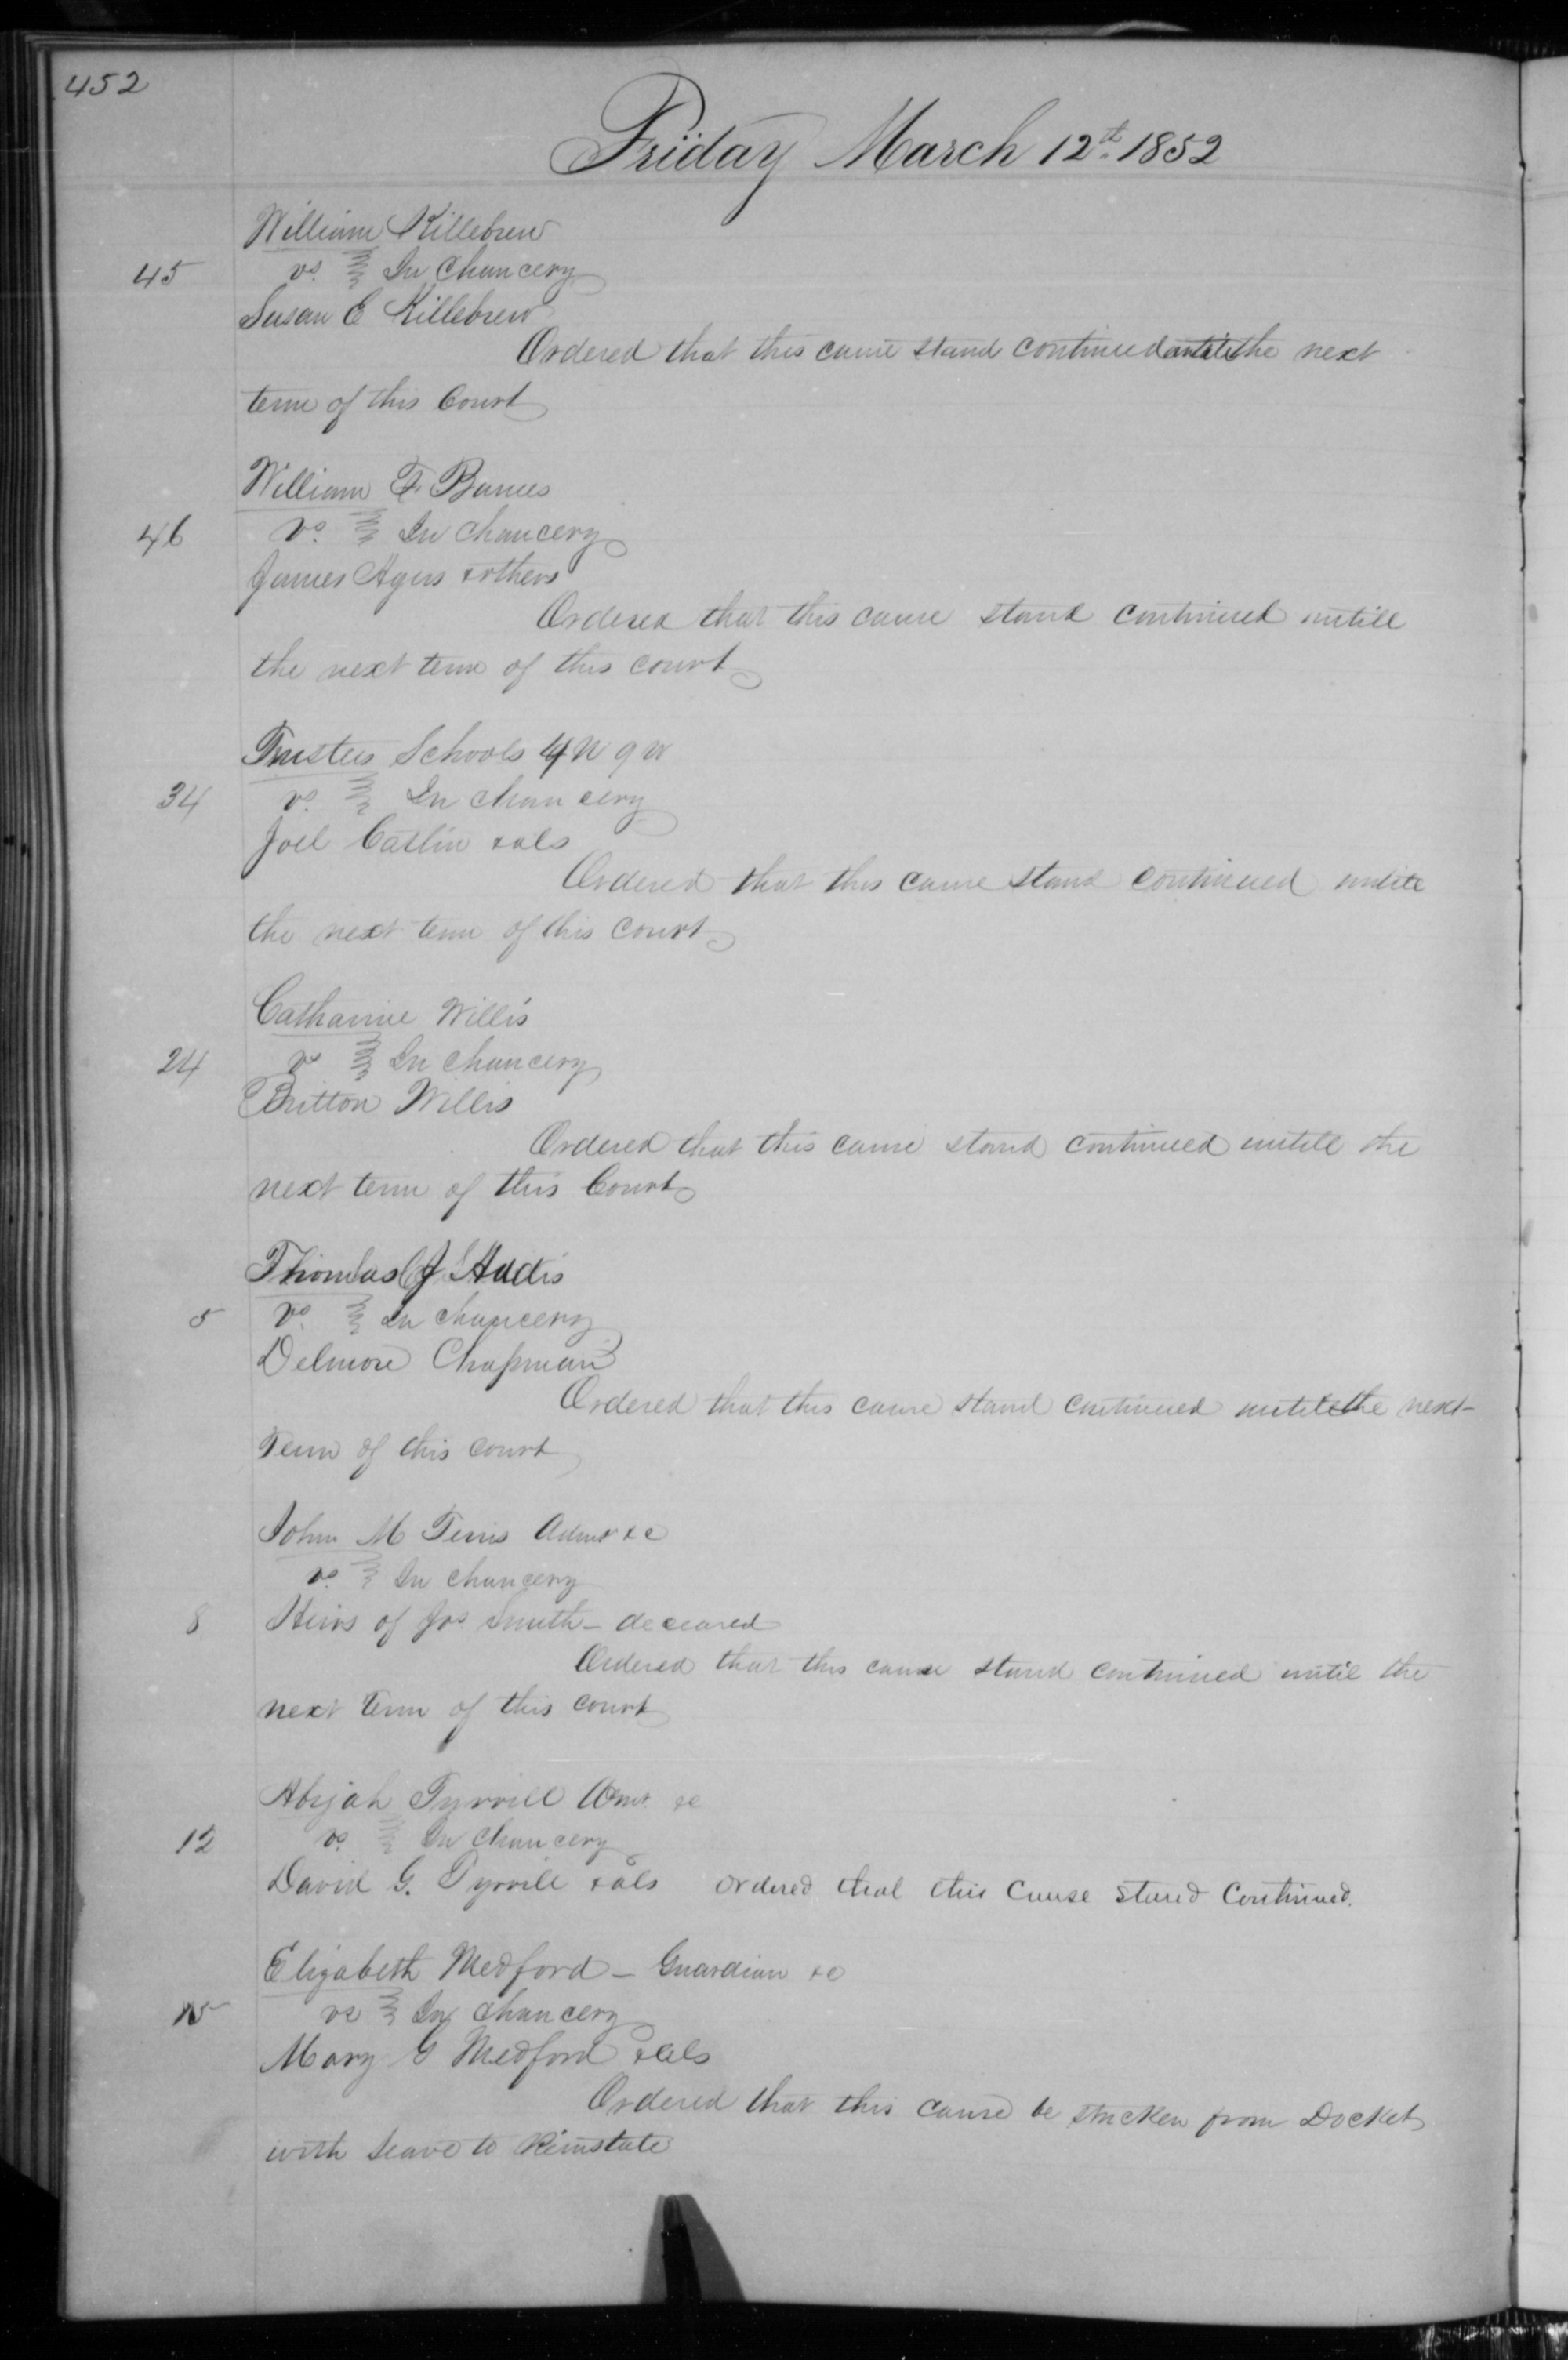 452
Friday March 12th 1852
William Killebrew
45 vs. In Chancery
Susan E Killebrew
Ordered that this cause stand continued untill the next
term of this Court
William F. Barnes
46 vs. In chancery
James Ayers & others
Ordered that this cause stand continued untill
the next term of this court
Trustees Schools 4 N 9 W
34 vs. In chancery
Joel Catlin & als
Ordered that this cause stand continued untill
the next term of this court
Catharine Willis
24 vs In chancery
Britton Willis
Ordered that this cause stand continued untill the
next term of this Court
Thomas J Addis
5 vs. In chancery
Delmore Chapman
Ordered that this cause stand continued untill the next
Term of this court
John M Tenis Admr &c
vs. In chancery
8 Heirs of Jos Smith - deceased
Ordered that this cause stand continued until the
next Term of this court
Abijah Tyrrill &c
12 vs. In Chancery
David G. Tyrrill & als ordered that this Cause stand Continued.
Elizabeth Medford - Guardian &c
15 vs In chancery
Mary G Medford & als
Ordered that this cause be stricken from Docket
with leave to Reinstate